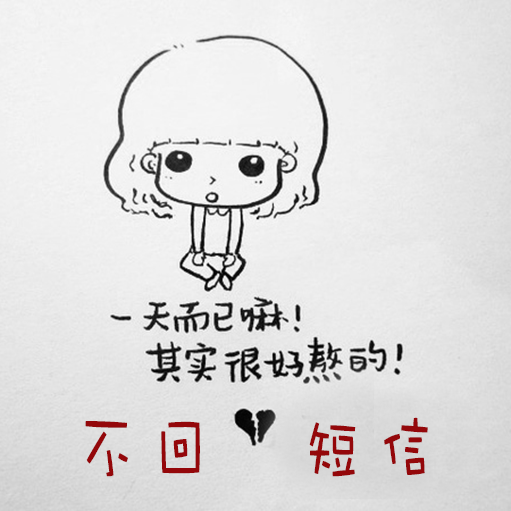 一天而已嘛!
其实很好熬的!
不回 短信